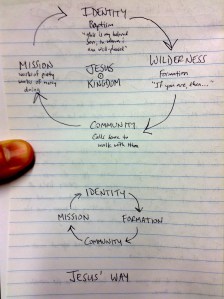 IDENTITY
Baptism
"this is my beloved
son, in whom i
am well-pleased"
MISSION
works of piety
works of mercy
doing
JESUS
KINGDOM
WILDERNESS
Formation
"If you are, then..."
COMMUNITY
Calls some to
walk with them
IDENTITY
MISSION
FORMATION
COMMUNITY
JESUS' WAY